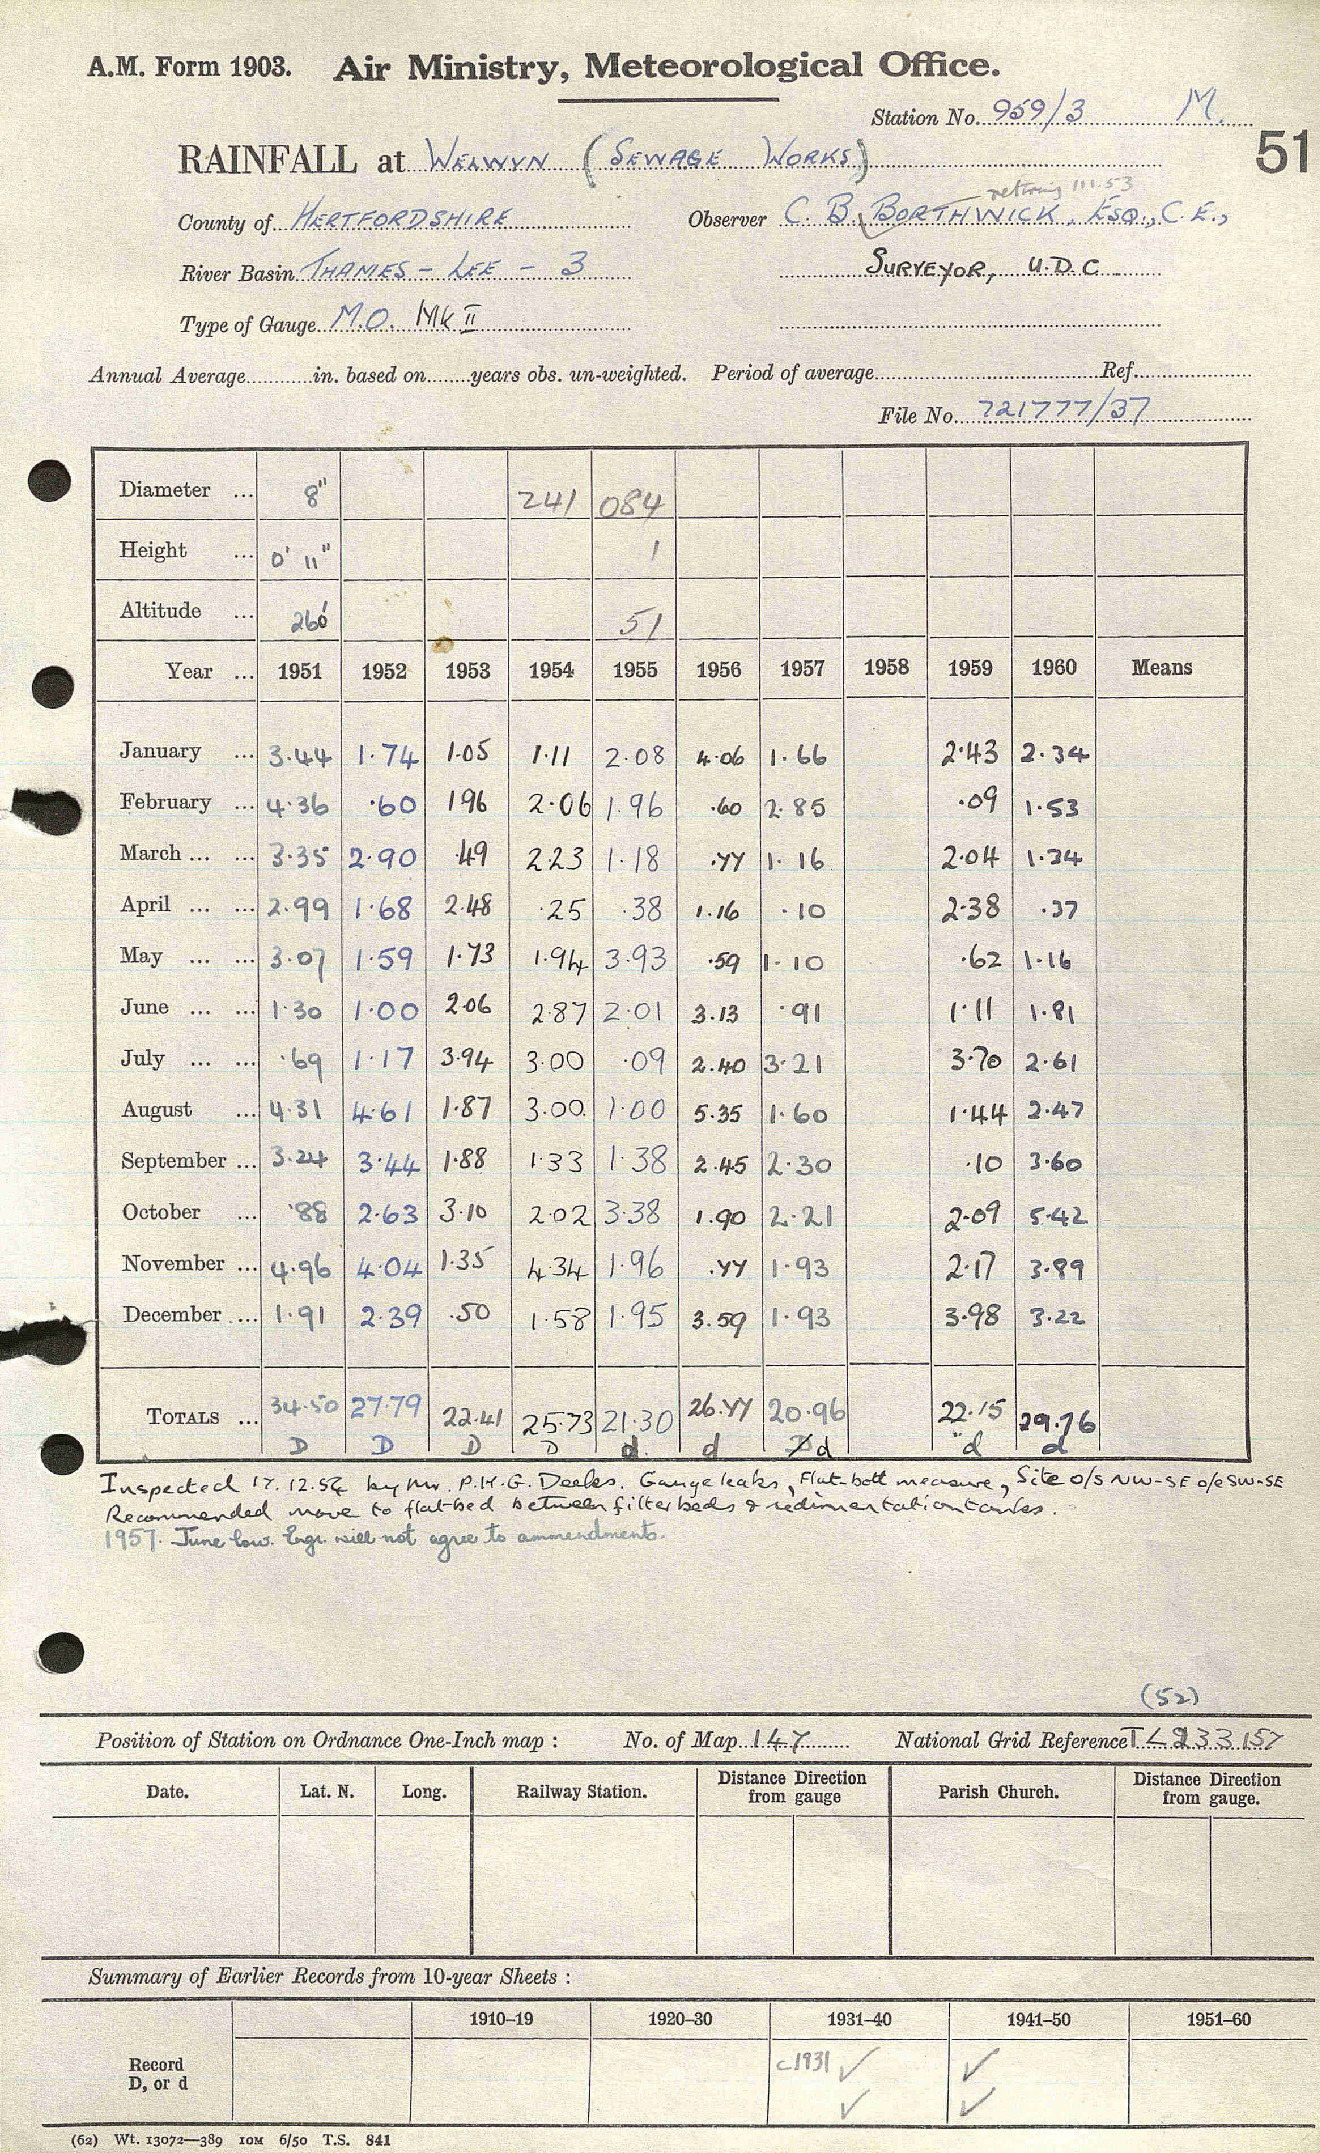 A.M. Form 1903. Air Ministry, Meteorological Office.
Station No. 959/3 M.
51
RAINFALL at WELWYN (SEWAGE WORKS)
retiring 1.11.53
County of HERTFORDSHIRE Observer C. B. BORTHWICK, ESQ., C.E.,
River Basin THAMES - LEE - 3 SURVEYOR, U.D.C.
Type of Gauge M.O. Mk II
Annual Average in. based on years obs. un-weighted. Period of average Ref.
File No. 721777/37
Diameter ... 8" 241 084
Height ... 0' 11" 1
Altitude ... 260' 51
Year ... 1951 1952 1953 1954 1955 1956 1957 1958 1959 1960 Means
January ... 3.44 1.74 1.05 1.11 2.08 4.06 1.66 2.43 2.34
February ... 4.36 .60 196 2.06 1.96 .60 2.85 .09 1.53
March ... ... 3.35 2.90 .49 2.23 1.18 .77 1.16 2.04 1.34
April ... ... 2.99 1.68 2.48 .25 .38 1.16 .10 2.38 .37
May ... ... 3.07 1.59 1.73 1.94 3.93 .59 1.10 .62 1.16
June ... ... 1.30 1.00 2.06 2.87 2.01 3.13 .91 1.11 1.81
July ... ... .69 1.17 3.94 3.00 .09 2.40 3.21 3.70 2.61
August ... 4.31 4.61 1.87 3.00 1.00 5.35 1.60 1.44 2.47
September ... 3.24 3.44 1.88 1.33 1.38 2.45 2.30 .10 3.60
October ... .88 2.63 3.10 2.02 3.38 1.90 2.21 2.09 5.42
November ... 4.96 4.04 1.35 4.34 1.96 .77 1.93 2.17 3.89
December ... 1.91 2.39 .50 1.58 1.95 3.59 1.93 3.98 3.22
TOTALS ... 34.50 27.79 22.41 25.73 21.30 26.77 20.96 22.15 29.76
D D D D d d d d d
Inspected 17.12.54 by Mr. P.H.G. Deeks. Gauge leaks, Flat-bott measure, Site o/s NW-SE o/e SW-SE
Recommended move to flat-bed between filter beds & sedimentation tanks.
1957. June low. Engr. will not agree to ammendments.
(52)
Position of Station on Ordnance One-Inch map : No. of Map 147 National Grid Reference TL 233157
Date. Lat. N. Long. Railway Station. Distance Direction from gauge Parish Church. Distance Direction from gauge.
Summary of Earlier Records from 10-year Sheets :
1910–19 1920–30 1931–40 1941–50 1951–60
Record c1931 ✓ ✓
D, or d ✓ ✓
(62) Wt. 13072—389 10M 6/50 T.S. 841